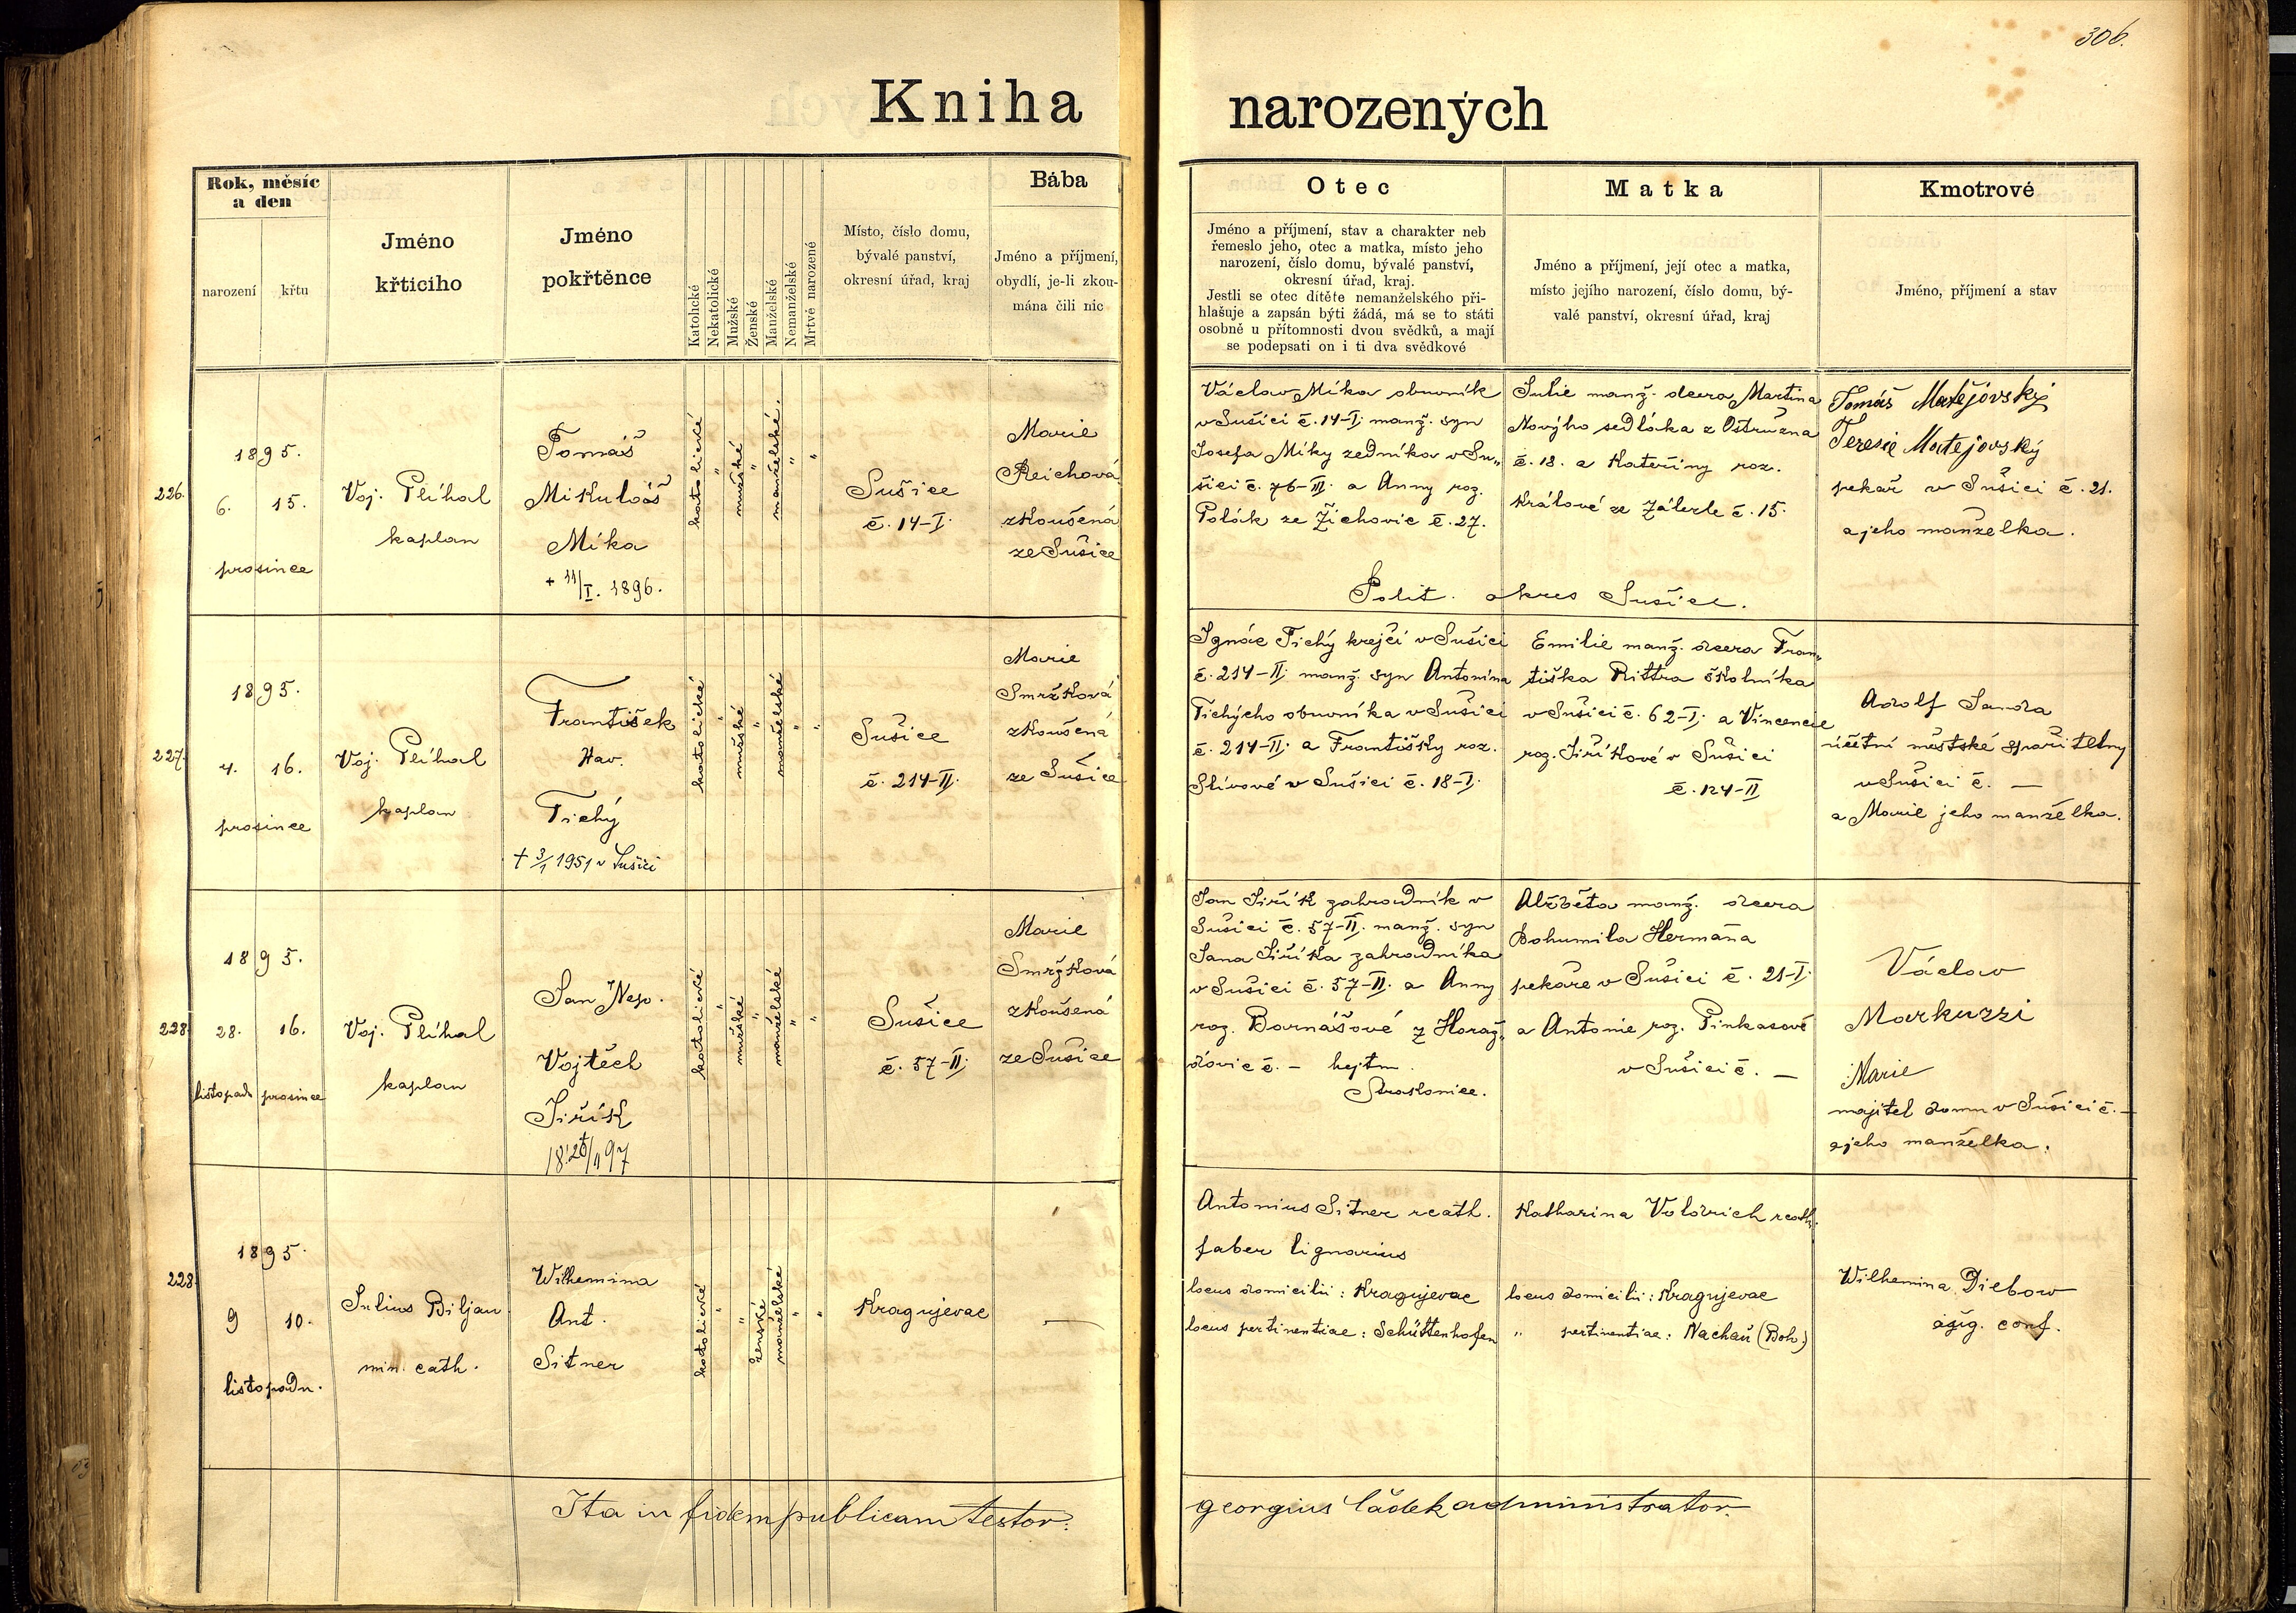 306.
Kniha narozených
Rok, měsíc
a den
narození
křtu
Jméno
křticího
Jméno
pokřtěnce
Katolické
Nekatolické
Mužské
Ženské
Manželské
Nemanželské
Mrtvě narozené
Místo, číslo domu,
bývalé panství,
okresní úřad, kraj
Bába
Jméno a příjmení,
obydlí, je-li zkou-
mána čili nic
Otec
Jméno a příjmení, stav a charakter neb
řemeslo jeho, otec a matka, místo jeho
narození, číslo domu, bývalé panství,
okresní úřad, kraj.
Jestli se otec dítěte nemanželského při-
hlašuje a zapsán býti žádá, má se to státi
osobně u přítomnosti dvou svědků, a mají
se podepsati on i ti dva svědkové
Matka
Jméno a příjmení, její otec a matka,
místo jejího narození, číslo domu, bý-
valé panství, okresní úřad, kraj
Kmotrové
Jméno, příjmení a stav
226.
1895.
6. 15.
prosince
Voj. Plíhal
kaplan
Tomáš
Mikuláš
Míka
+ 11/I. 1896.
katolické
"
mužské
"
manželské.
"
"
Sušice
č. 14-I.
Marie
Reichová
zkoušená
ze Sušice
Václav Míka obuvník
v Sušici č. 14-I. manž. syn
Josefa Míky zedníka v Su„
šici č. 76-III. a Anny roz.
Polák ze Žichovic č. 27.
Julie manž. dcera Martina
Nového sedláka z Ostružna
č. 18. a Kateřiny roz.
Králové ze Zálesle č. 15.
Tomáš Matějovský
Terezie Matejovský
pekař v Sušici č. 21.
a jeho manželka.
Polit. okres Sušice.
227.
1895.
4. 16.
prosince
Voj. Plíhal
kaplan
František
Xav.
Tichý
† 3/1 1951 v Sušici
katolické
"
mužské
"
manželské
"
"
Sušice
č. 214-II.
Marie
Smržková
zkoušená
ze Sušice
Ignác Tichý krejčí v Sušici
č. 214-II. manž. syn Antonína
Tichýcho obuvníka v Sušici
č. 214-II. a Františky roz.
Slívové v Sušici č. 18-I.
Emilie manž. dcera Fran„
tiška Rittra školníka
v Sušici č. 62-I. a Vincencie
roz. Jiříkové v Sušici
č. 124-II
Adolf Janda
účetní městské spořitelny
v Sušici č. —
a Marie jeho manželka.
228
1895.
28. 16.
listopadu prosince
Voj. Plíhal
kaplan
Jan Nep.
Vojtěch
Jiřík
katolické
"
mužské
"
manželské
"
"
Sušice
č. 57-II.
Marie
Smržková
zkoušená
ze Sušice
Jan Jiřík zahradník v
Sušici č. 57-II. manž. syn
Jana Jiříka zahradníka
v Sušici č. 57-II. a Anny
roz. Barnášové z Horaž„
dovic č. – hejtm.
Strakonice.
Alžběta manž. dcera
Bohumila Heřmana
pekaře v Sušici č. 21-I.
a Antonie roz. Pinkasové
v Sušici č. —
Václav
Markuzzi
Marie
majitel domu v Sušici č. –
a jeho manželka.
228.
1895.
9 10.
listopadu.
Julius Biljan
min. cath.
Wilhemina
Ant.
Sitner
katolické
"
"
ženské
manželské
"
"
Kragujevac
—
Antonius Sitner rcath.
faber lignarius
locus domicilii: Kragujevac
locus pertinentiae: Schüttenhofen
Katharina Voldrich rcath.
locus domicilii: Kragujevac
" pertinentiae: Nachau (Boh.)
Wilhemina Diebow
aug. conf.
Ita in fidem publicam testor:
georgius Ládek administrator.